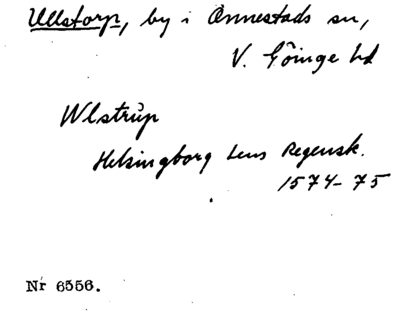 Ullstorp, by i Önnestads sn,
V. Göinge hd
Wlstrup
Helsingborg Lens Regensk.
1574-75
Nr 6556.